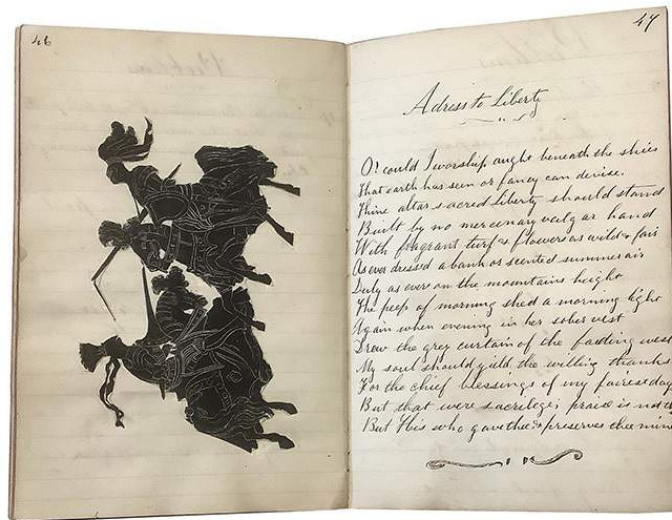 46
47
Adress to Liberty
O! could I worship aught beneath the skies
That earth has seen or fancy can devise.
Thine altar sacred liberty should stand
Built by no mercenary vulgar hand
With fragrant turf & flowers as wild & fair
As ever dressed a bank or scented summer air
Duly as ever on the mountains height
The peep of morning shed a morning light
Again when evening in her sober vest
Drew the grey curtain of the fading west
My soul should yield the willing thanks
For the chief blessings of my fairest day
But that were sacrilege; praise is not
But His who gave thee & preserves thee mine